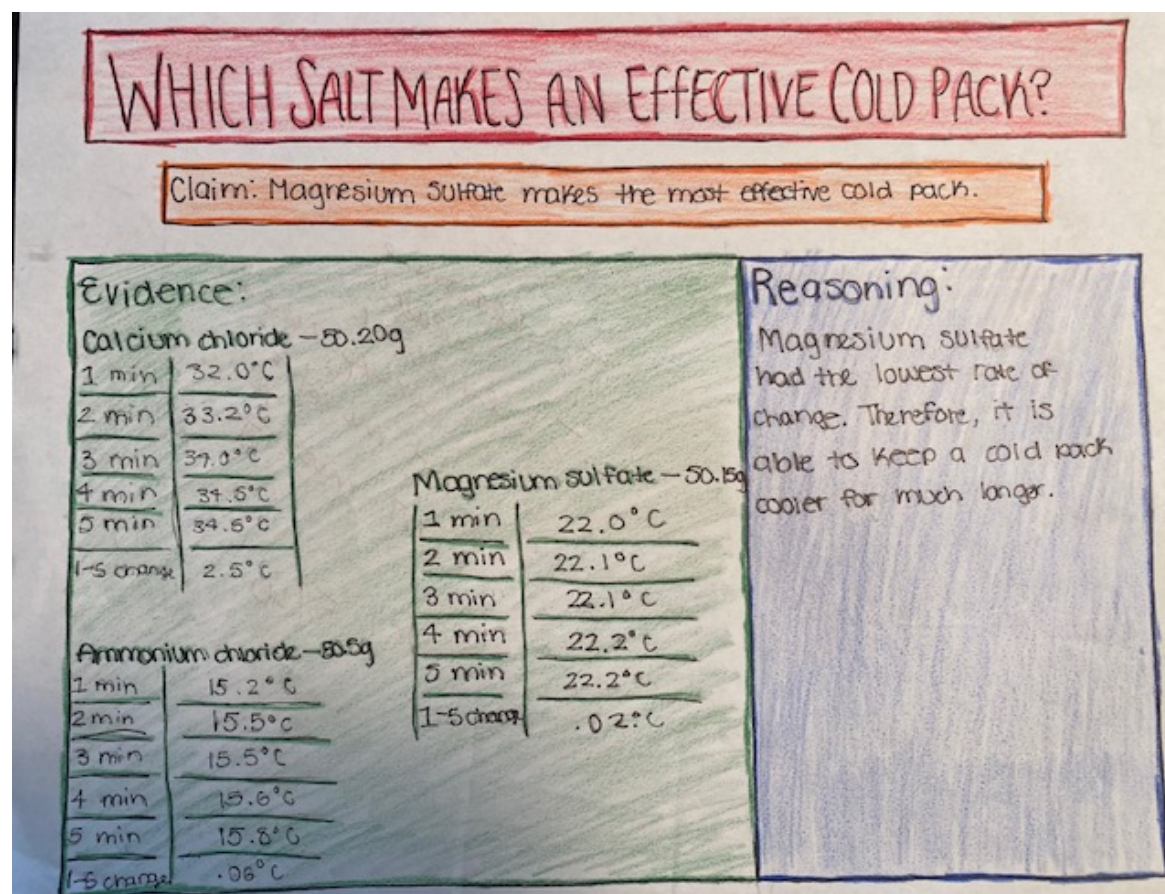 WHICH SALT MAKES AN EFFECTIVE COLD PACK?
Claim: Magnesium Sulfate makes the most effective cold pack.
Evidence:
Calcium chloride – 50.20g
1 min 32.0°C
2 min 33.2°C
3 min °C
4 min 34.5°C
5 min 34.5°C
1-5 change 2.5°C
Ammonium chloride – 50.5g
1 min 15.2°C
2 min 15.5°C
3 min 15.5°C
4 min 15.6°C
5 min 15.8°C
1-5 change .06°C
Magnesium sulfate – 50.15g
1 min 22.0°C
2 min 22.1°C
3 min 22.1°C
4 min 22.2°C
5 min 22.2°C
1-5 change .02°C
Reasoning:
Magnesium sulfate
had the lowest rate of
change. Therefore, it is
able to keep a cold pack
cooler for much longer.